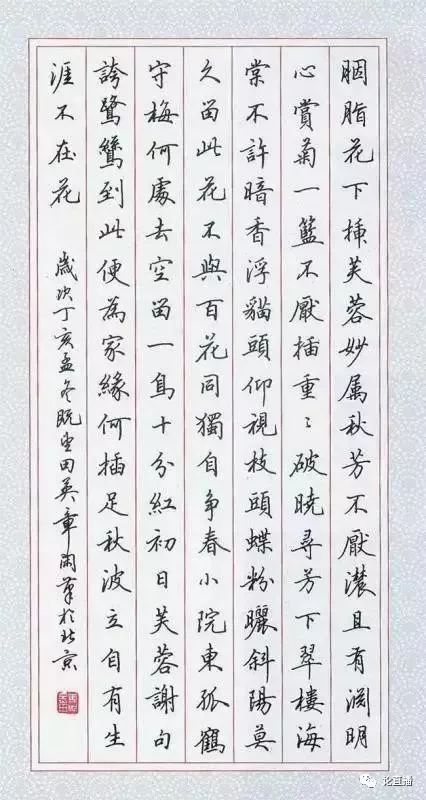 胭脂花下插芙蓉妙属秋芳不厭濃且有渊明
心賞菊一籃不厭插重〻破曉尋芳下翠樓海
棠不許暗香浮貓頭仰視枝頭蝶粉曬斜陽莫
久留此花不與百花同獨自争春小院東孤鶴
守梅何處去空留一鳥十分紅初日芙蓉謝句
誇鷺鷥到此便為家緣何插足秋波立自有生
涯不在花
歲次丁亥孟冬既望田英章閑筆於北京
化直播